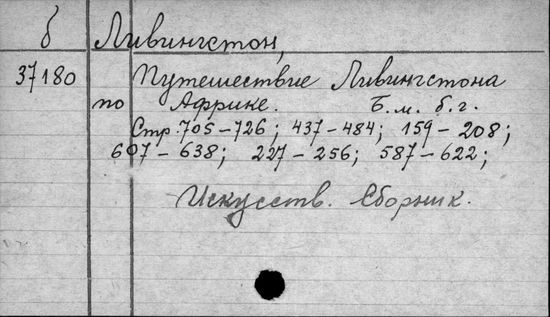 б Ливингстон,
37180 Путешествие Ливингстона
по Африке. Б.м. б.г.
Стр. 705-726; 437-484; 159-208;
607-638; 227-256; 587-622;
Искусств. Сборник.